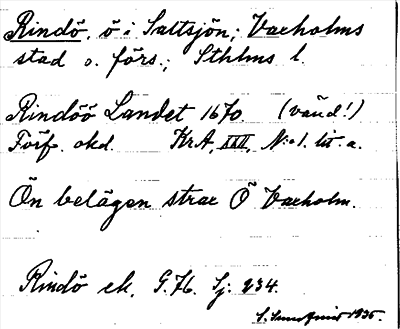 Rindö, ö i Saltsjön; Vaxholms
stad o. förs.; Sthlms l.
Rindöö Landet 1670. (vänd!)
Förf. okd. KrA, XXII, N:o 1. lit. a.
Ön belägen strax Ö Vaxholm.
Rindö ek. G.K. Sj: 234.
1935.